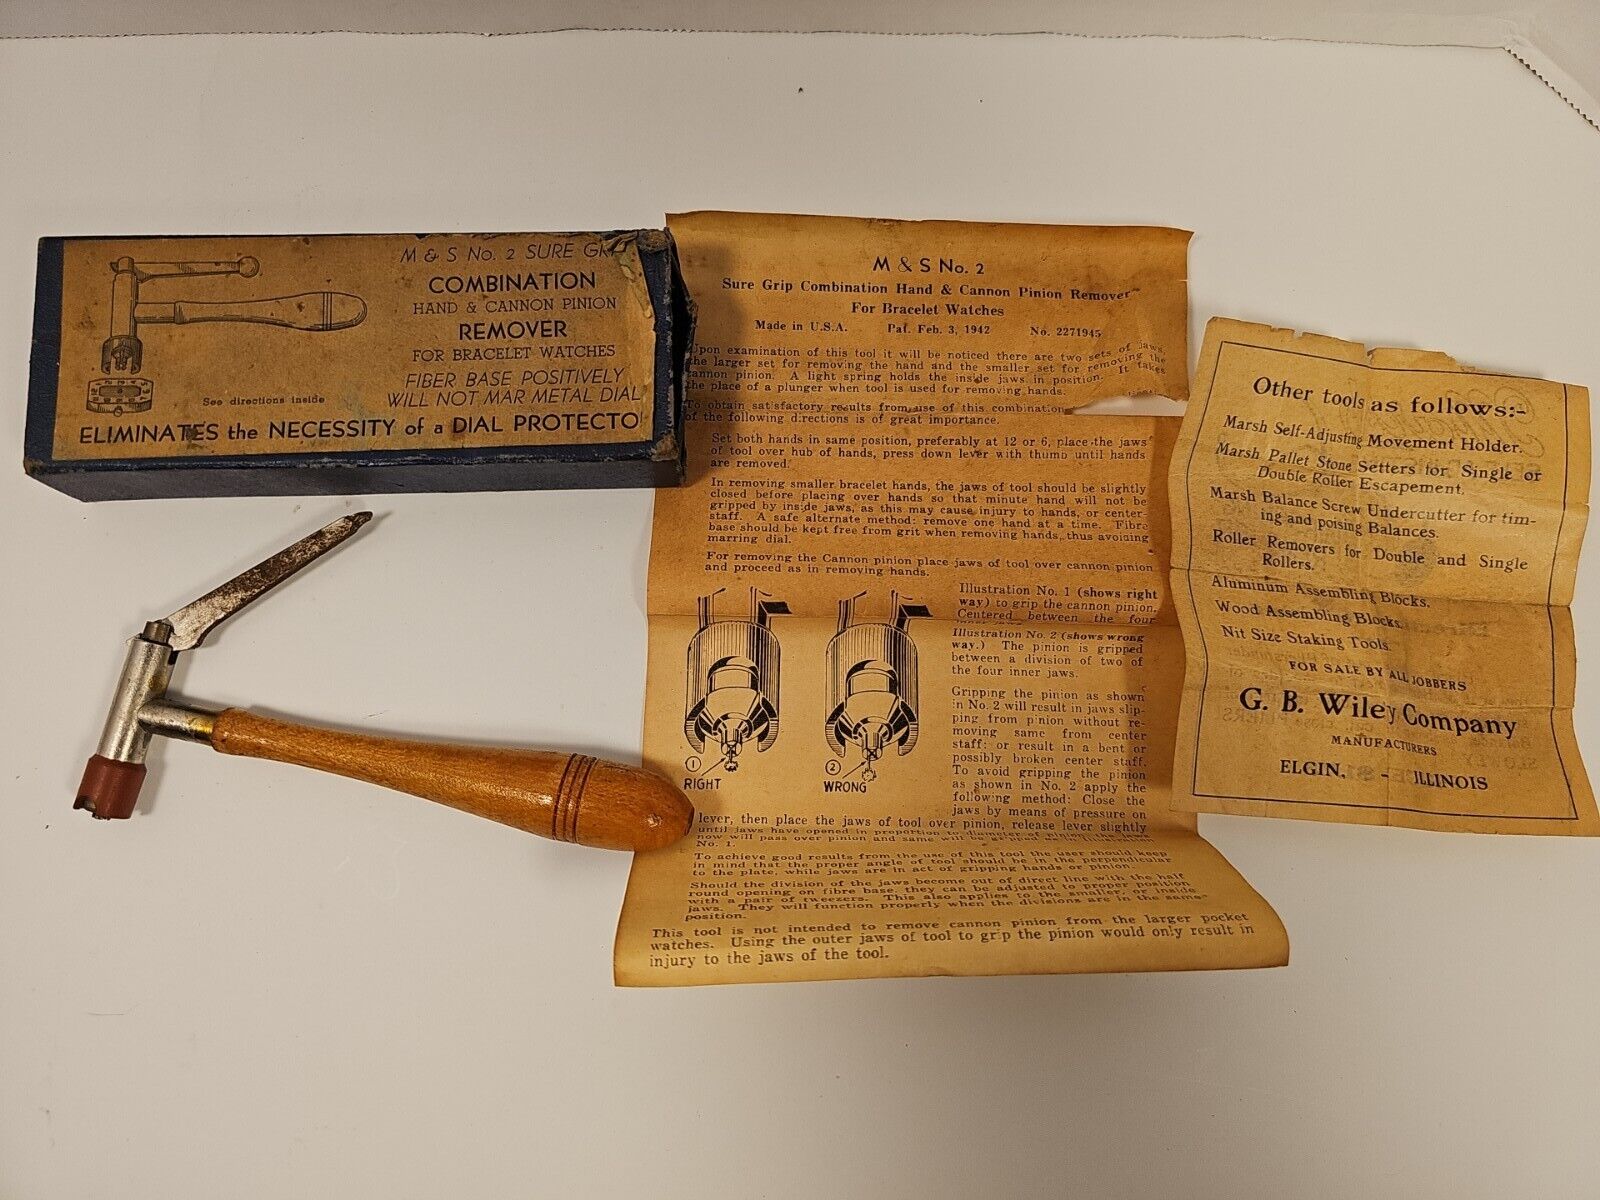 M & S No. 2 SURE
COMBINATION
HAND & CANNON PINION
REMOVER
FOR BRACELET WATCHES
FIBER BASE POSITIVELY
WILL NOT MAR METAL DIAL
See directions inside
ELIMINATES the NECESSITY of a DIAL PROTECTO
M & S No. 2
Sure Grip Combination Hand & Cannon Pinion Remover
For Bracelet Watches
Made in U.S.A. Pat. Feb. 3, 1942 No. 2271945
Upon examination of this tool it will be noticed there are two sets of jaws,
the larger set for removing the hand and the smaller set for removing the
cannon pinion. A light spring holds the inside jaws in position. It takes
the place of a plunger when tool is used for removing hands.
To obtain satisfactory results from use of this combination
of the following directions is of great importance.
Set both hands in same position, preferably at 12 or 6, place the jaws
of tool over hub of hands, press down lever with thumb until hands
are removed.
In removing smaller bracelet hands, the jaws of tool should be slightly
closed before placing over hands so that minute hand will not be
gripped by inside jaws, as this may cause injury to hands, or center-
staff. A safe alternate method: remove one hand at a time. Fibre
base should be kept free from grit when removing hands, thus avoining
marring dial.
For removing the Cannon pinion place jaws of tool over cannon pinion
and proceed as in removing hands.
Illustration No. 1 (shows right
way) to grip the cannon pinion.
Centered between the four
Illustration No. 2 (shows wrong
way.) The pinion is gripped
between a division of two of
the four inner jaws.
Gripping the pinion as shown
in No. 2 will result in jaws slip-
ping from pinion without re-
moving same from center
staff: or result in a bent or
possibly broken center staff.
To avoid gripping the pinion
as shown in No. 2 apply the
following method: Close the
jaws by means of pressure on
1
RIGHT
2
WRONG
lever, then place the jaws of tool over pinion, release lever slightly
until jaws have opened in proportion to diameter of pinion, the jaws
now will pass over pinion and same will be
No. 1.
To achieve good results from the use of this tool the user should keep
in mind that the proper angle of tool should be in the perpendicular
to the plate, while jaws are in act of gripping hands or pinion.
Should the division of the jaws become out of direct line with the half
round opening on fibre base, they can be adjusted to proper position
with a pair of tweezers. This also applies to the smaller, or inside
jaws. They will function properly when the divisions are in the same
position.
This tool is not intended to remove cannon pinion from the larger pocket
watches. Using the outer jaws of tool to grip the pinion would only result in
injury to the jaws of the tool.
Other tools as follows:-
Marsh Self-Adjusting Movement Holder.
Marsh Pallet Stone Setters for Single or
Double Roller Escapement.
Marsh Balance Screw Undercutter for tim-
ing and poising Balances.
Roller Removers for Double and Single
Rollers.
Aluminum Assembling Blocks.
Wood Assembling Blocks.
Nit Size Staking Tools.
FOR SALE BY ALL JOBBERS
G. B. Wiley Company
MANUFACTURERS
ELGIN, - ILLINOIS